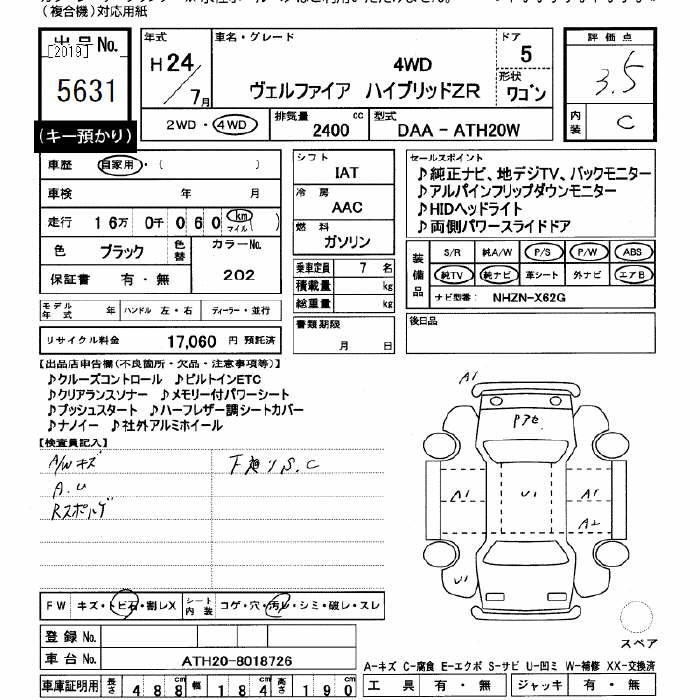 (複合機)対応用紙
出品No. [2019] 5631
(キー預かり)
年式 H24/7月
車名・グレード 4WD ヴェルファイア ハイブリッドZR
ドア 5
形状 ワゴン
評価点 3.5
内装 C
2WD・4WD 排気量 2400 cc 型式 DAA - ATH20W
車歴 自家用・( )
車検 年 月
走行 16万 0千 060 km マイル( )
色 ブラック 色替 カラーNo. 202
保証書 有・無
モデル年式 年 ハンドル 左・右 ディーラー・並行
リサイクル料金 17,060 円 預託済
シフト IAT
冷房 AAC
燃料 ガソリン
乗車定員 7 名
積載量 kg
総重量 kg
書類期限 月 日
セールスポイント
♪純正ナビ、地デジTV、バックモニター
♪アルパインフリップダウンモニター
♪HIDヘッドライト
♪両側パワースライドドア
装備品 S/R 純A/W P/S P/W ABS
純TV 純ナビ 革シート 外ナビ エアB
ナビ型番: NHZN-X62G
後日品
【出品店申告欄(不良箇所・欠品・注意事項等)】
♪クルーズコントロール ♪ビルトインETC
♪クリアランスソナー ♪メモリー付パワーシート
♪プッシュスタート ♪ハーフレザー調シートカバー
♪ナノイー ♪社外アルミホイール
【検査員記入】
A/Wキズ 下廻りS.C
A.U
A1
A1 U1 A1
A2
U1
FW キズ・トビ石・割レX シート内装 コゲ・穴・汚レ・シミ・破レ・スレ
登録No.
車台No. ATH20-8018726
車庫証明用 長さ 488 cm 幅 184 cm 高さ 190 cm
スペア
A-キズ C-腐食 E-エクボ S-サビ U-凹ミ W-補修 XX-交換済
工具 有・無 ジャッキ 有・無